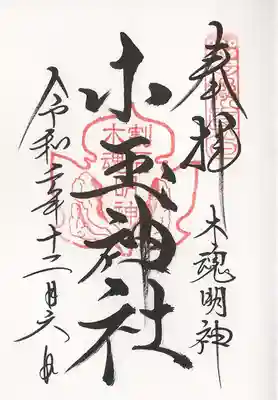 奉拝
木魂明神
木玉神社
令和三年十二月六日